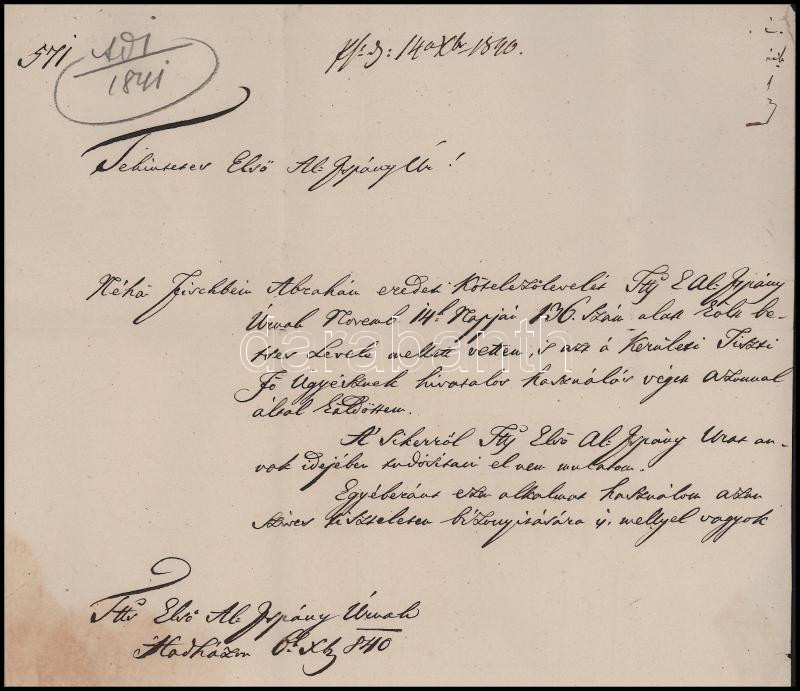 571
Adl
1841
14a Xbr 1840.
Tekintetes Első Al-Ispány Úr!
Néhai Fischbein Abrahám eredeti Kötelezőlevelét Ttts E Al-Ispány
Úrnak Novemb 14k Napján 136. Szám alatt költ be-
tses Levele mellett vettem, is azt a' Kerületi Tiszti
Fő Ügyésznek hivatalos használás végett azonnal
által küldöttem.
A' Sikerről Ttts Első Al-Ispány Urat an-
nak idejében tudósítani el nem mulatom.
Egyébberánt ezen alkalmat használom azon
szíves tiszteletem bizonyítására is, mellyel vagyok
darabanth
Ttts Első Al-Ispány Úrnak
Hadházon 6k Xbr 840